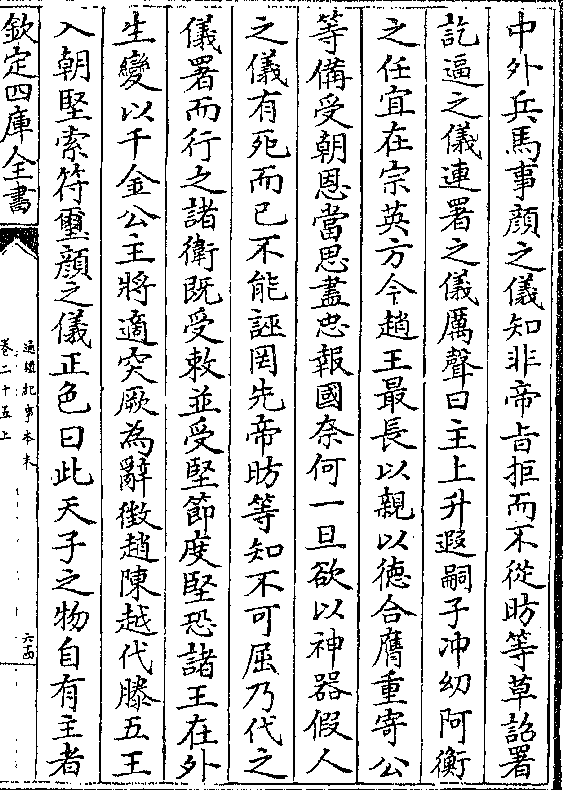 中外兵馬事顔之儀知非帝旨拒而不從昉等草詔署
訖逼之儀連署之儀厲聲曰主上升遐嗣子冲幼阿衡
之任宜在宗英方今趙王最長以親以德合膺重寄公
等備受朝恩當思盡忠報國奈何一旦欲以神器假人
之儀有死而已不能誣罔先帝昉等知不可屈乃代之
儀署而行之諸衛既受敕並受堅節度堅恐諸王在外
生變以千金公主將適突厥為辭徵趙陳越代滕五王
入朝堅索符璽顔之儀正色曰此天子之物自有主者
欽定四庫全書
通鑑紀事本末
卷二十五上